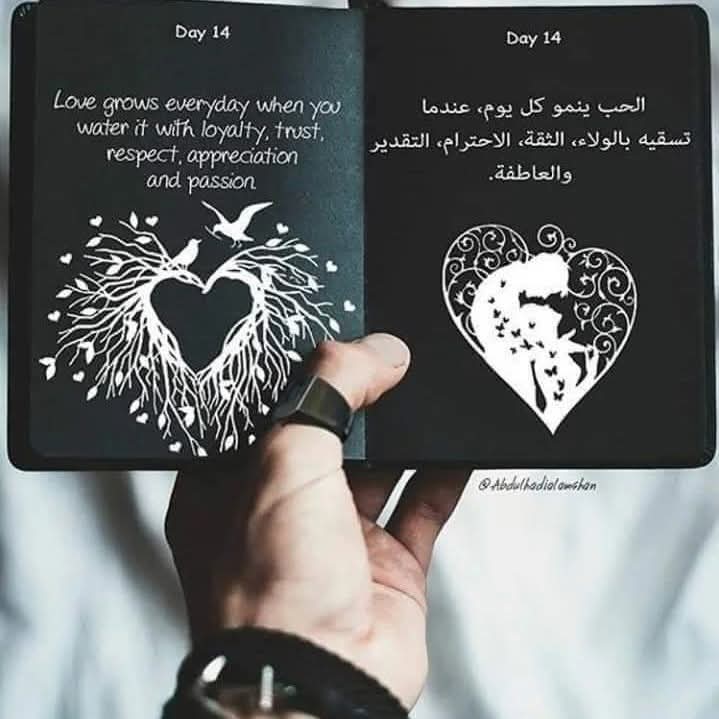 Day 14
Love grows everyday when you
water it with loyalty, trust,
respect, appreciation
and passion
Day 14
الحب ينمو كل يوم، عندما
تسقيه بالولاء، الثقة، الاحترام، التقدير
والعاطفة.
@Abdulhadialawshan